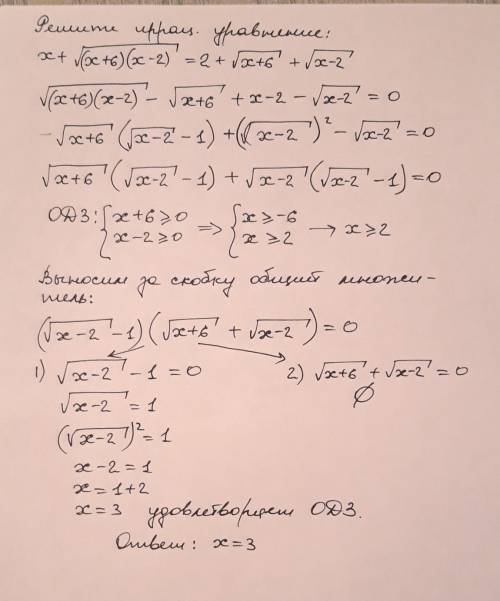 Решите иррац. уравнение:
x + √(x+6)(x-2) = 2 + √x+6 + √x-2
√(x+6)(x-2) - √x+6 + x-2 - √x-2 = 0
√x+6 (√x-2 - 1) + (√x-2)² - √x-2 = 0
√x+6 (√x-2 - 1) + √x-2 (√x-2 - 1) = 0
ОДЗ: { x+6 ≥ 0 x-2 ≥ 0 ⇒ { x ≥ -6 x ≥ 2 → x ≥ 2
Выносим за скобку общий множи-
тель:
(√x-2 - 1)(√x+6 + √x-2) = 0
1) √x-2 - 1 = 0 2) √x+6 + √x-2 = 0
√x-2 = 1 ∅
(√x-2)² = 1
x-2 = 1
x = 1+2
x = 3 удовлетворяет ОДЗ.
Ответ: x = 3